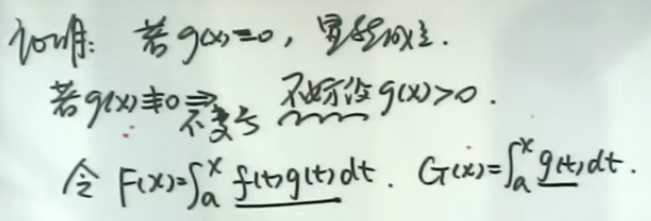 证明: 若 g(x)=0, 显然成立.
若 g(x)≢0 ⇒ 不变号 不妨设 g(x)>0.
令 F(x)=∫ₐˣ f(t)g(t)dt. G(x)=∫ₐˣ g(t)dt.